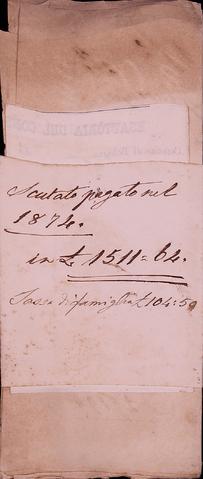 ESATTORIA DEL CO
Scutato pagato nel
1874.
in £. 1511=64.
Tassa di famiglia £ 104=50